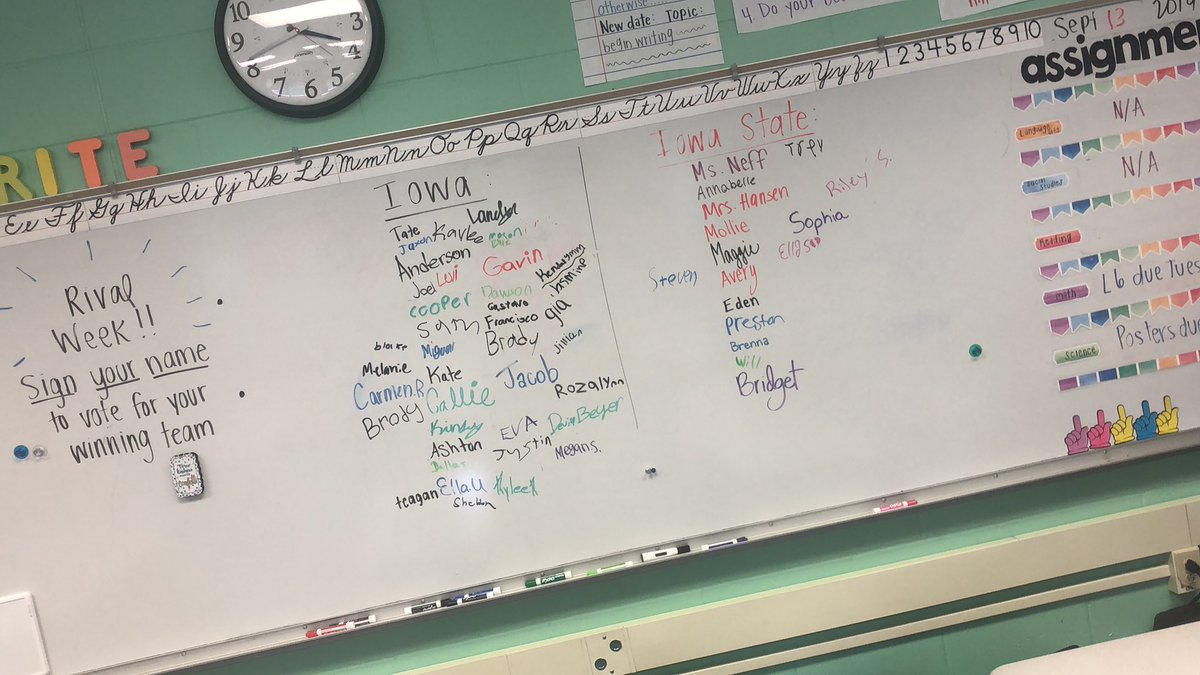 10
9
8
7 6 5
4
3
otherwise...
New date: Topic:
begin writing
4. Do your
RITE
Ee Ff Gg Hh Ii Jj Kk Ll Mm Nn Oo Pp Qq Rr Ss Tt Uu Vv Ww Xx Yy Zz 1 2 3 4 5 6 7 8 9 10
Sept 13 2019
Rival
Week!!
Sign your name
to vote for your
winning team
Iowa:
Tate Landyn
Jaxon Kaylee Mason
Anderson
Joel Levi Gavin
Cooper Dawson Jasmine
Gustavo
Sam Francisco Gia
Blake Miguel Brody Jillian
Melanie Kate Jacob
Carmen.R Callie Rozalynn
Brody Kinsey EVA Devin Beyer
Ashton Justin Megan S.
Dallas
teagan Ella.U KyleeK
Sheldon
Iowa State:
Ms. Neff Trey
Annabelle
Mrs. Hansen Riley S.
Mollie Sophia
Maggie Ellason
Steven Avery
Eden
Preston
Brenna
Will
Bridget
assignme
N/A
Social Studies
N/A
Reading
math
L6 due Tues
Science
Posters du